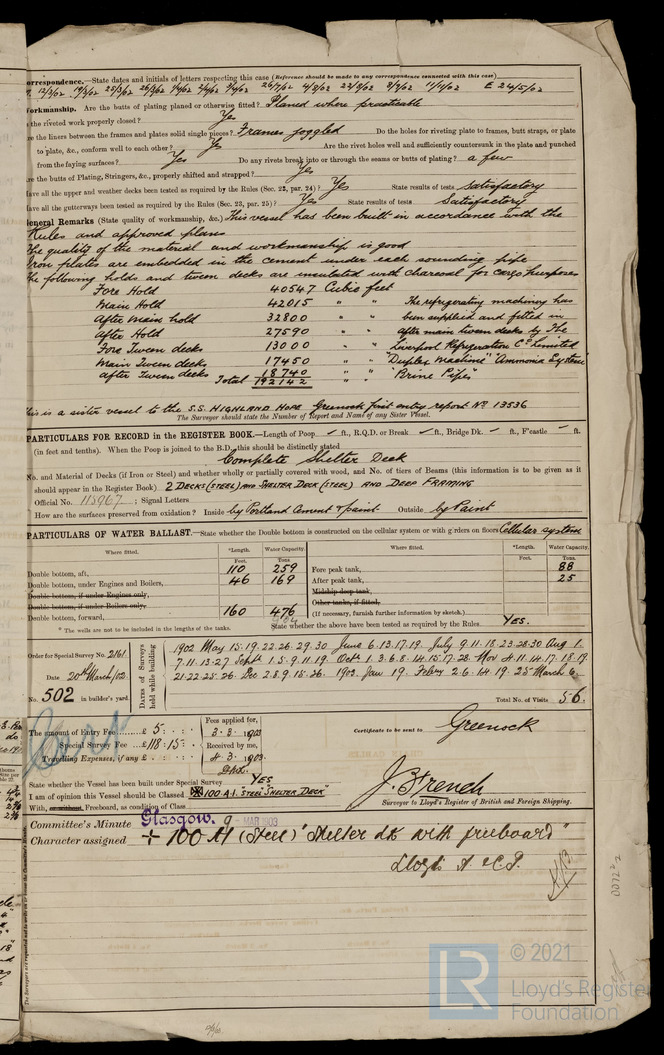 orrespondence.—State dates and initials of letters respecting this case (Reference should be made to any correspondence connected with this case)
12/3/02 19/3/02 25/3/02 26/3/02 24/7/02 4/8/02 22/8/02 E 24/5/02
Workmanship. Are the butts of plating planed or otherwise fitted? Planed where practicable
the riveted work properly closed? Yes
re the liners between the frames and plates solid single pieces? Frames joggled Do the holes for riveting plate to frames, butt straps, or plate
to plate, &c., conform well to each other? Yes Are the rivet holes well and sufficiently countersunk in the plate and punched
from the faying surfaces? Yes Do any rivets break into or through the seams or butts of plating? a few
re the butts of Plating, Stringers, &c., properly shifted and strapped? Yes
ave all the upper and weather decks been tested as required by the Rules (Sec. 23, par. 24)? Yes State results of tests Satisfactory
ave all the gutterways been tested as required by the Rules (Sec. 23, par. 25)? Yes State results of tests Satisfactory
General Remarks (State quality of workmanship, &c.) This vessel has been built in accordance with the
Rules and approved plans
The quality of the material and workmanship is good
Iron plates are embedded in the cement under each sounding pipe
The following holds and tween decks are insulated with charcoal for cargo purposes
Fore Hold 40547 Cubic feet
Main Hold 42015 " " The refrigerating machinery has
After Main hold 32800 " " been supplied and fitted in
After Hold 27590 " " after main tween decks by The
Fore Tween decks 13000 " " Liverpool Refrigeration Co Limited
Main Tween decks 17450 " " "Duplex Machine" "Ammonia System"
After Tween decks 18740 " " "Brine Pipes"
Total 192142 " "
This is a sister vessel to the S.S. HIGHLAND HOPE Greenock first entry report No 13536
The Surveyor should state the Number of Report and Name of any Sister Vessel.
PARTICULARS FOR RECORD in the REGISTER BOOK.—Length of Poop ft., R.Q.D. or Break ft., Bridge Dk. ft., F'castle ft.
(in feet and tenths). When the Poop is joined to the B.D., this should be distinctly stated
Complete Shelter Deck
No. and Material of Decks (if Iron or Steel) and whether wholly or partially covered with wood, and No. of tiers of Beams (this information is to be given as it
should appear in the Register Book) 2 DECKS (STEEL) AND SHELTER DECK (STEEL) AND DEEP FRAMING
Official No. 115967 ; Signal Letters
How are the surfaces preserved from oxidation? Inside by Portland Cement & paint Outside by Paint
PARTICULARS OF WATER BALLAST.—State whether the Double bottom is constructed on the cellular system or with girders on floors Cellular system
Where fitted. *Length. Water Capacity. Where fitted. *Length. Water Capacity.
Feet. Tons. Feet. Tons.
Double bottom, aft, 110 259 Fore peak tank, 88
Double bottom, under Engines and Boilers, 46 169 After peak tank, 25
Double bottom, if under Engines only, Midship deep tank,
Double bottom, if under Boilers only, Other tanks, if fitted,
Double bottom, forward, 160 476 (If necessary, furnish further information by sketch.)
904 State whether the above have been tested as required by the Rules YES.
* The wells are not to be included in the lengths of the tanks.
Order for Special Survey No. 2161
Date 20th March/02
No. 502 in builder's yard.
Dates of Surveys held while building
1902 May 15.19.22.26.29.30 June 6.13.17.19. July 9.11.18.23.28.30 Aug 1.
7.11.13.27 Sept 1.5.9.11.19. Oct 1.3.6.8.14.15.17.28 Nov 4.11.14.17.18.19
21.22.25.26. Dec 2.8.9.15.26. 1903. Jan 19. Febry 2.6.14.19.25 March 6.
Total No. of Visits 56.
The amount of Entry Fee £ 5 : :
Special Survey Fee £118 : 15 :
Travelling Expenses, if any £ : :
Fees applied for,
3.3.1903
Received by me,
4.3.1903
Certificate to be sent to Greenock
State whether the Vessel has been built under Special Survey YES
I am of opinion this Vessel should be Classed ✠100.A.1. "STEEL" "SHELTER DECK"
With, or without, Freeboard, as condition of Class
J. B French
Surveyor to Lloyd's Register of British and Foreign Shipping.
Committee's Minute Glasgow. 9 - MAR 1903
Character assigned + 100 A1 (Steel) "Shelter dk with freeboard"
Lloyds A. & C.P.
0072 2/2
© 2021
LR Lloyd's Register
Foundation